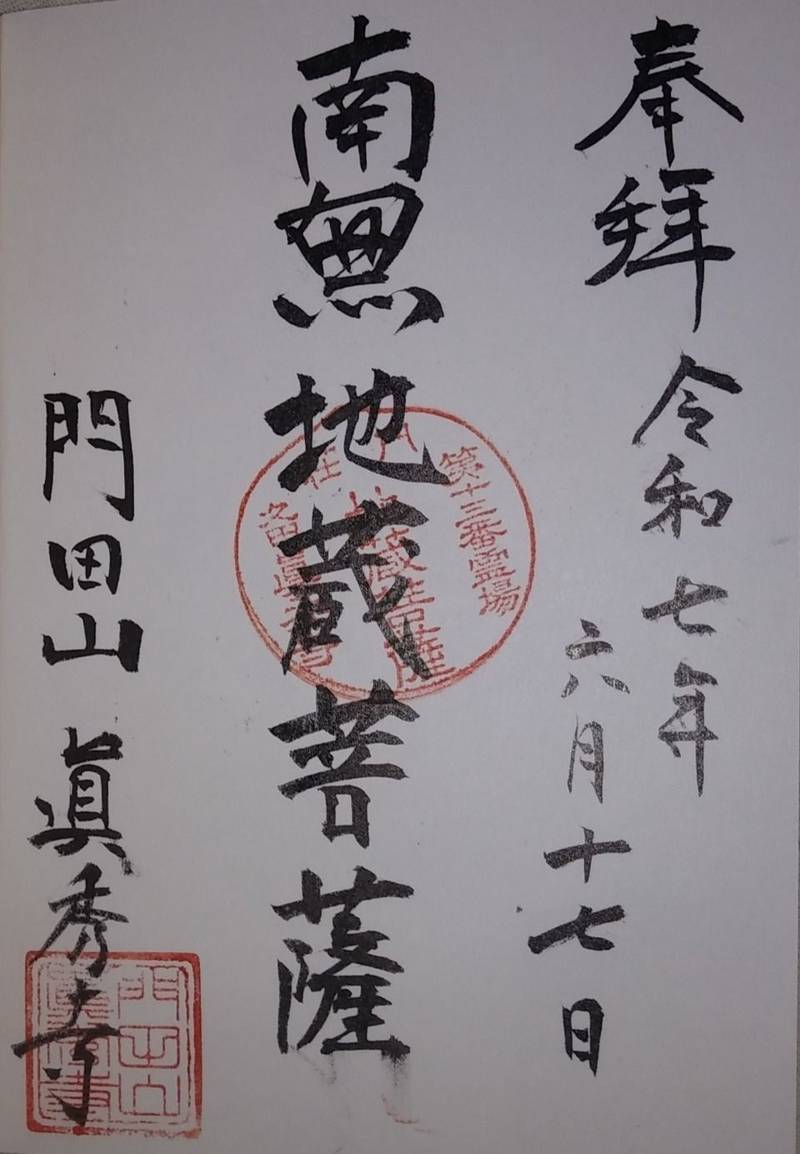 奉拜
令和七年
六月十七日
南無地蔵菩薩
第十三番霊場
地蔵菩薩
門田山
眞秀寺